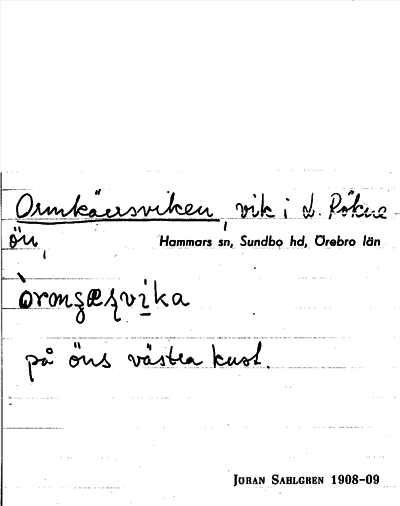 Ormkärrsviken, vik i L. Rökne
ön,
Hammars sn, Sundbo hd, Örebro län
på öns västra kust.
JÖRAN SAHLGREN 1908-09